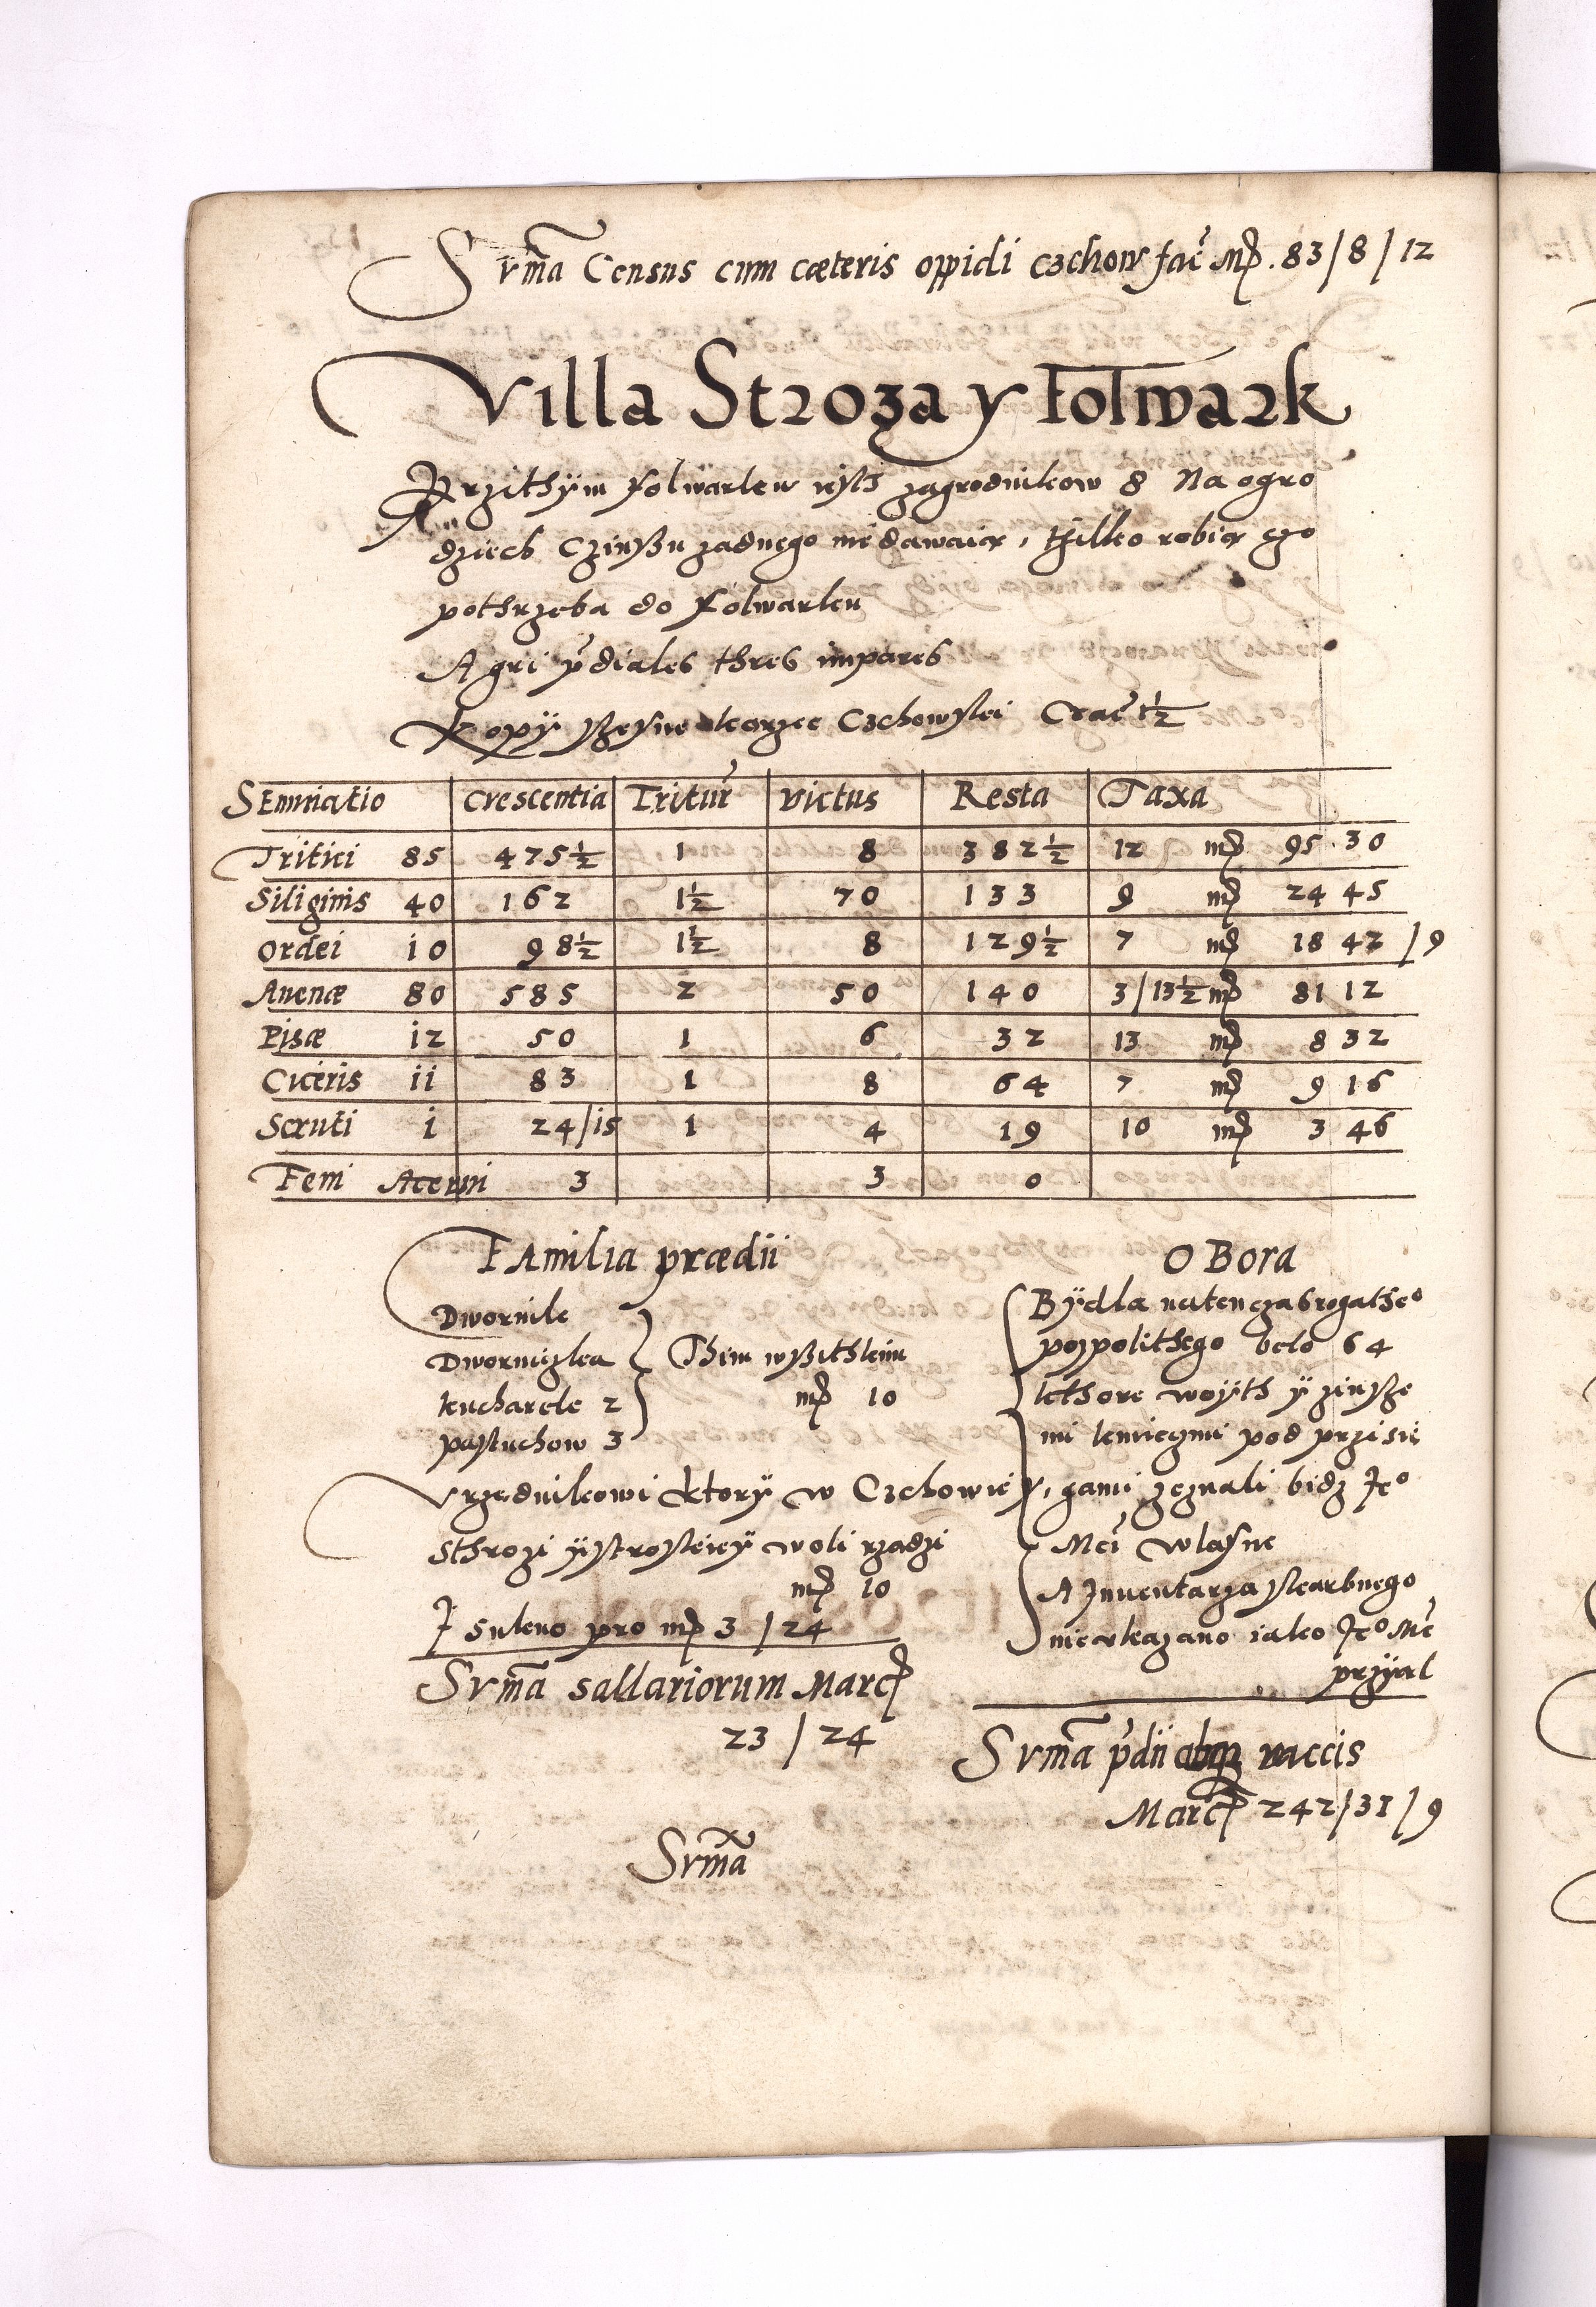 Svma Census cum cæteris oppidi czchow fac Mp. 83/8/12
Villa Stroza y Folwark
Przithÿm folwarku iest zagrodnikow 8 Na ogro
dziech Czinßu zadnego nie dawaia, thilko robia czo
pothrzeba do folwarku
Agri pdiales thres impares
Kopÿ Korzec Czchowski Crac 1½
Seminatio Crescentia Tritur victus Resta Taxa
Tritici 85 475½ 1 8 382½ 12 mp 95.30
Siliginis 40 162 1½ 70 133 9 mp 24 45
Ordei 10 98½ 1½ 8 129½ 7 mp 18 42/9
Auenæ 80 585 2 50 140 3/13½ mp 81 12
Pisæ 12 50 1 6 32 13 mp 8 32
Ciceris ii 83 1 8 64 7 mp 9 16
Scruti i 24/15 1 4 19 10 mp 3 46
Feni Acerui 3 3 0
Familia prædii
Dwornik
Dworniczka Thim wßithkim
kucharek 2 mp 10
pastuchow 3
Vrzednikowi ktorÿ w Czchowie y,
Sthrozi ÿ stroskieÿ woli rzadzi
mp 10
J sukno pro mp 3/24
Svma sallariorum Marcp
23/24
OBora
Bÿdla natenczas rogatheo
pospolithego beło 64
kthore woÿth ÿ zinsze
mi kmieczmi pod przisie
gami zeznali bidz Jeo
Mci własne
A Inuentarza skarbnego
nie vkazano iako Jeo Mc
przÿał
Svma pdii vaccis
Marcp 242/31/9
Svma